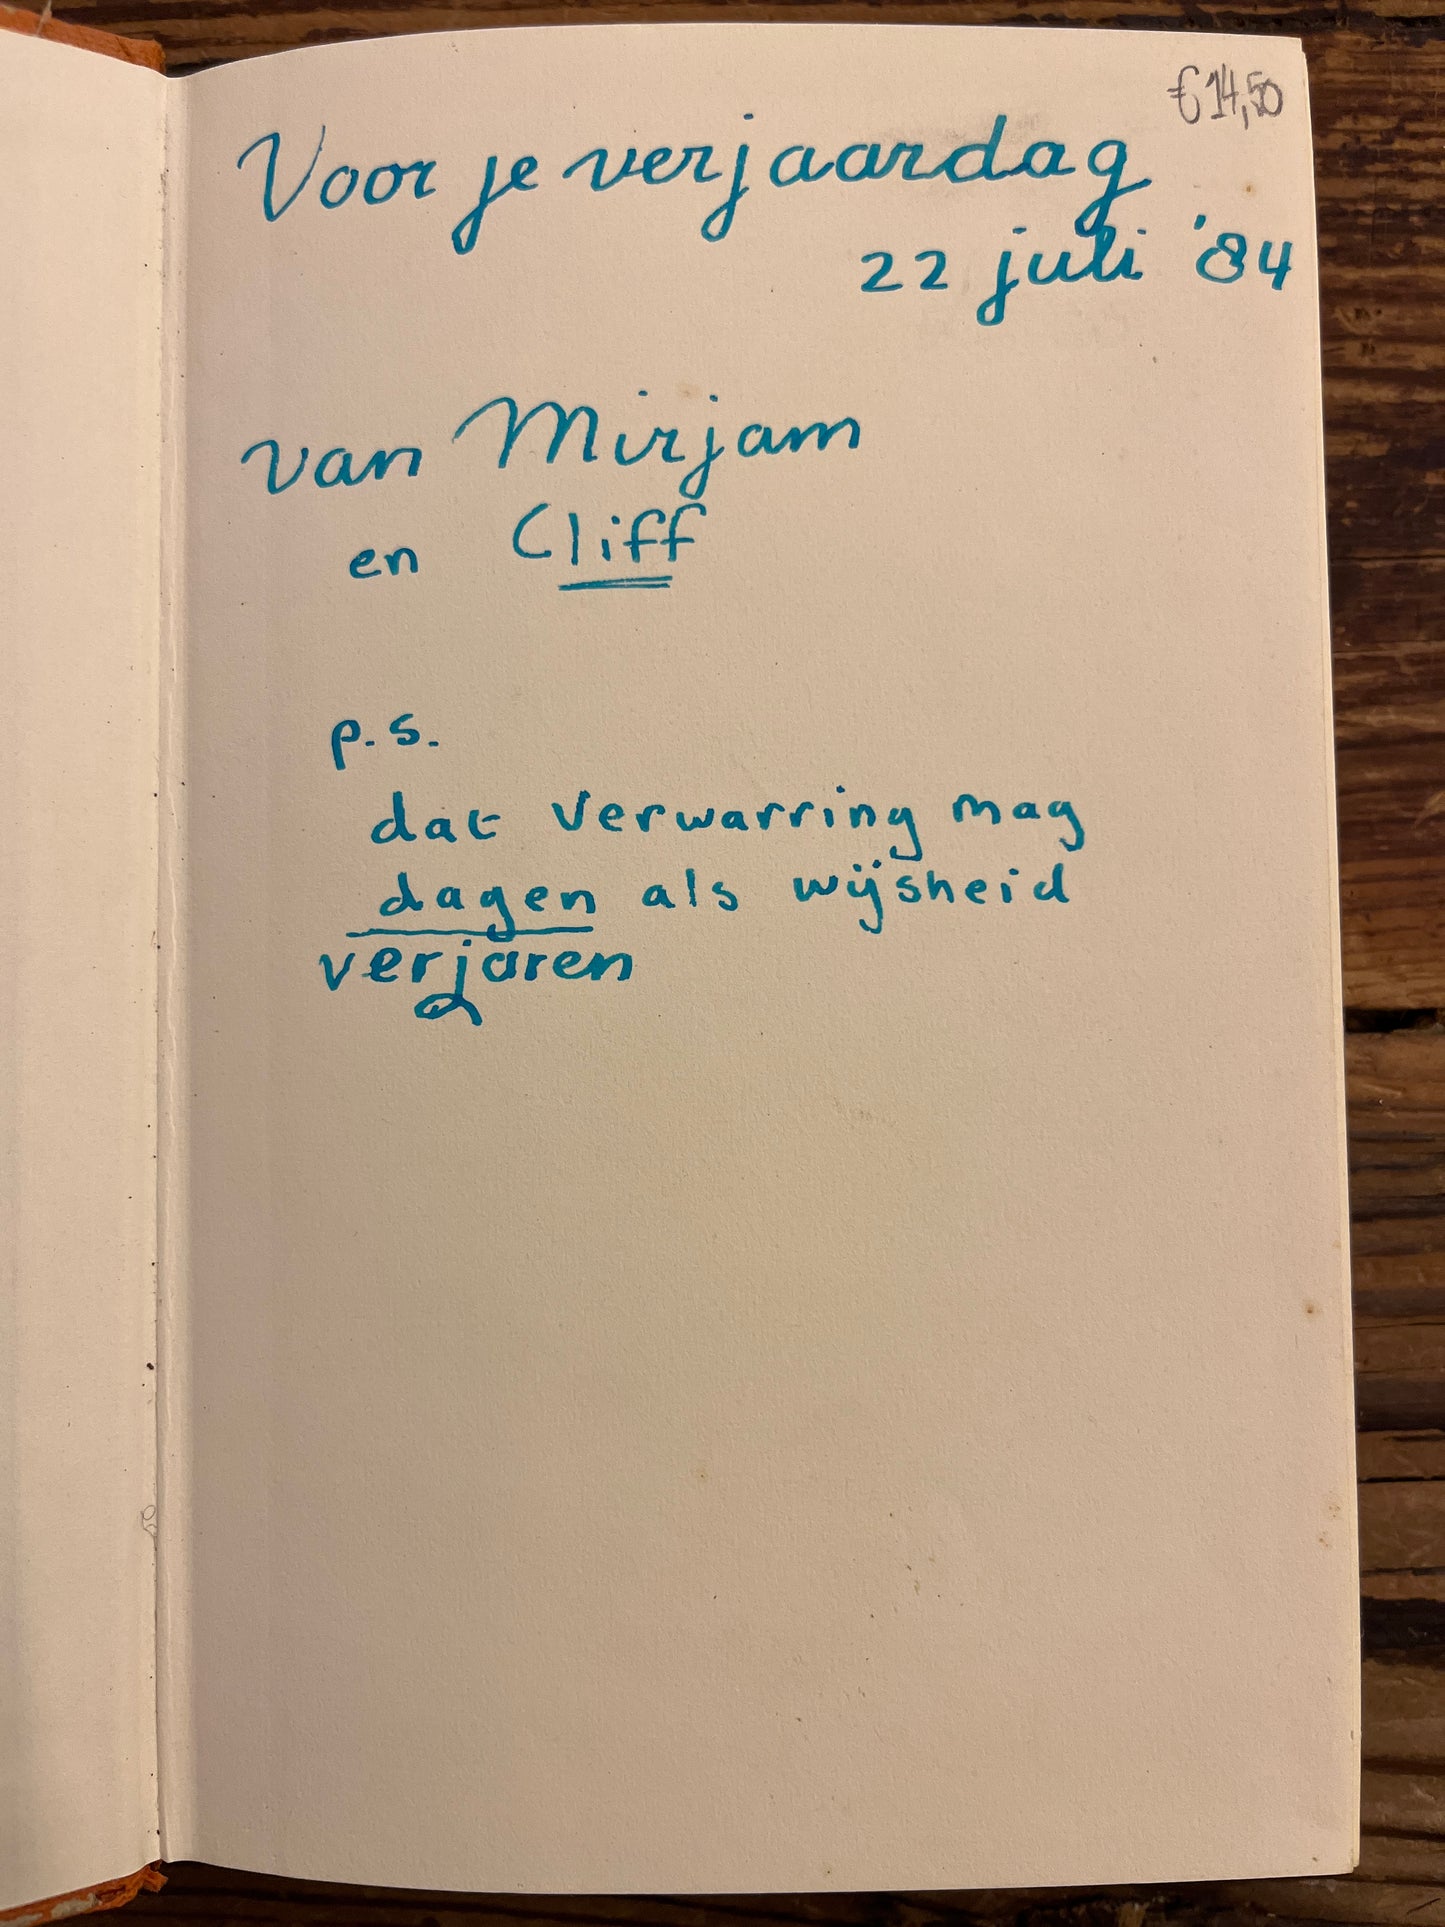 €14,50
Voor je verjaardag
22 juli '84
van Mirjam
en Cliff
p.s.
dat verwarring mag
dagen als wijsheid
verjaren